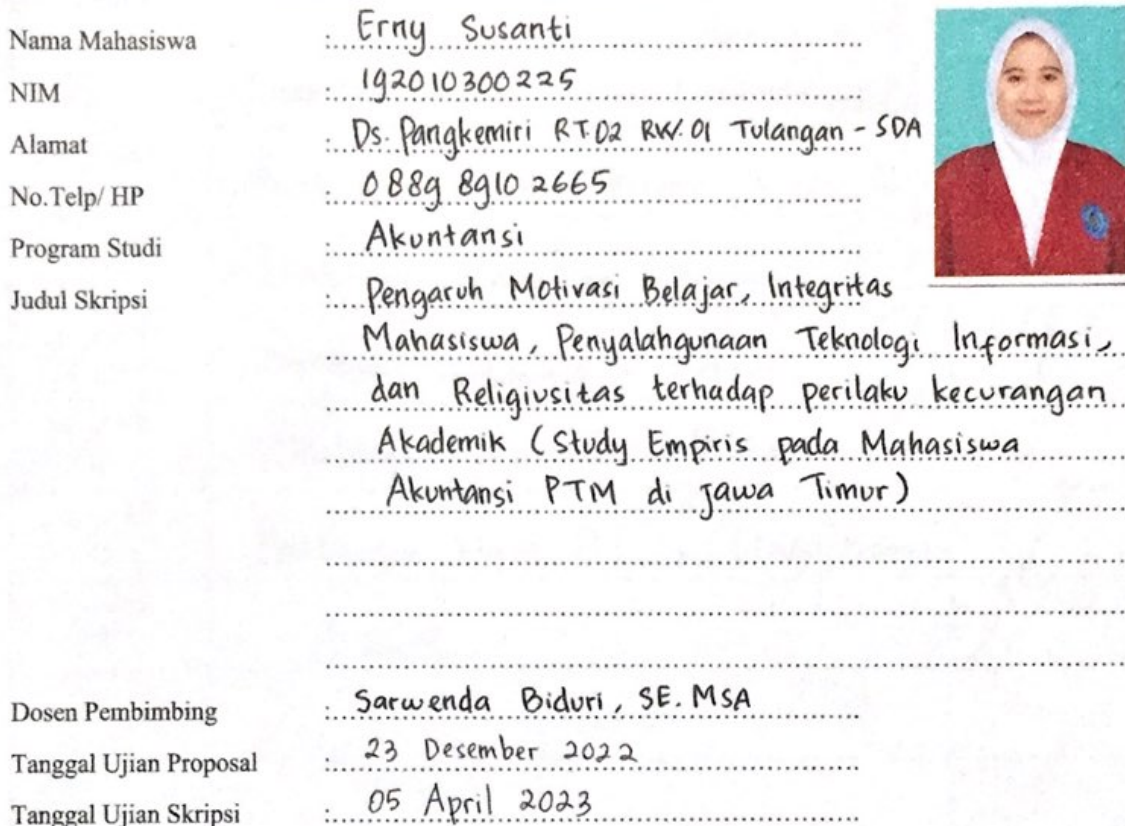 Nama Mahasiswa : Erny Susanti
NIM : 192010300225
Alamat : Ds. Pangkemiri RT.02 RW.01 Tulangan - SDA
No.Telp/ HP : 0889 8910 2665
Program Studi : Akuntansi
Judul Skripsi : Pengaruh Motivasi Belajar, Integritas
Mahasiswa, Penyalahgunaan Teknologi Informasi,
dan Religiusitas terhadap perilaku kecurangan
Akademik (Study Empiris pada Mahasiswa
Akuntansi PTM di Jawa Timur)
Dosen Pembimbing : Sarwenda Biduri, SE. MSA
Tanggal Ujian Proposal : 23 Desember 2022
Tanggal Ujian Skripsi : 05 April 2023